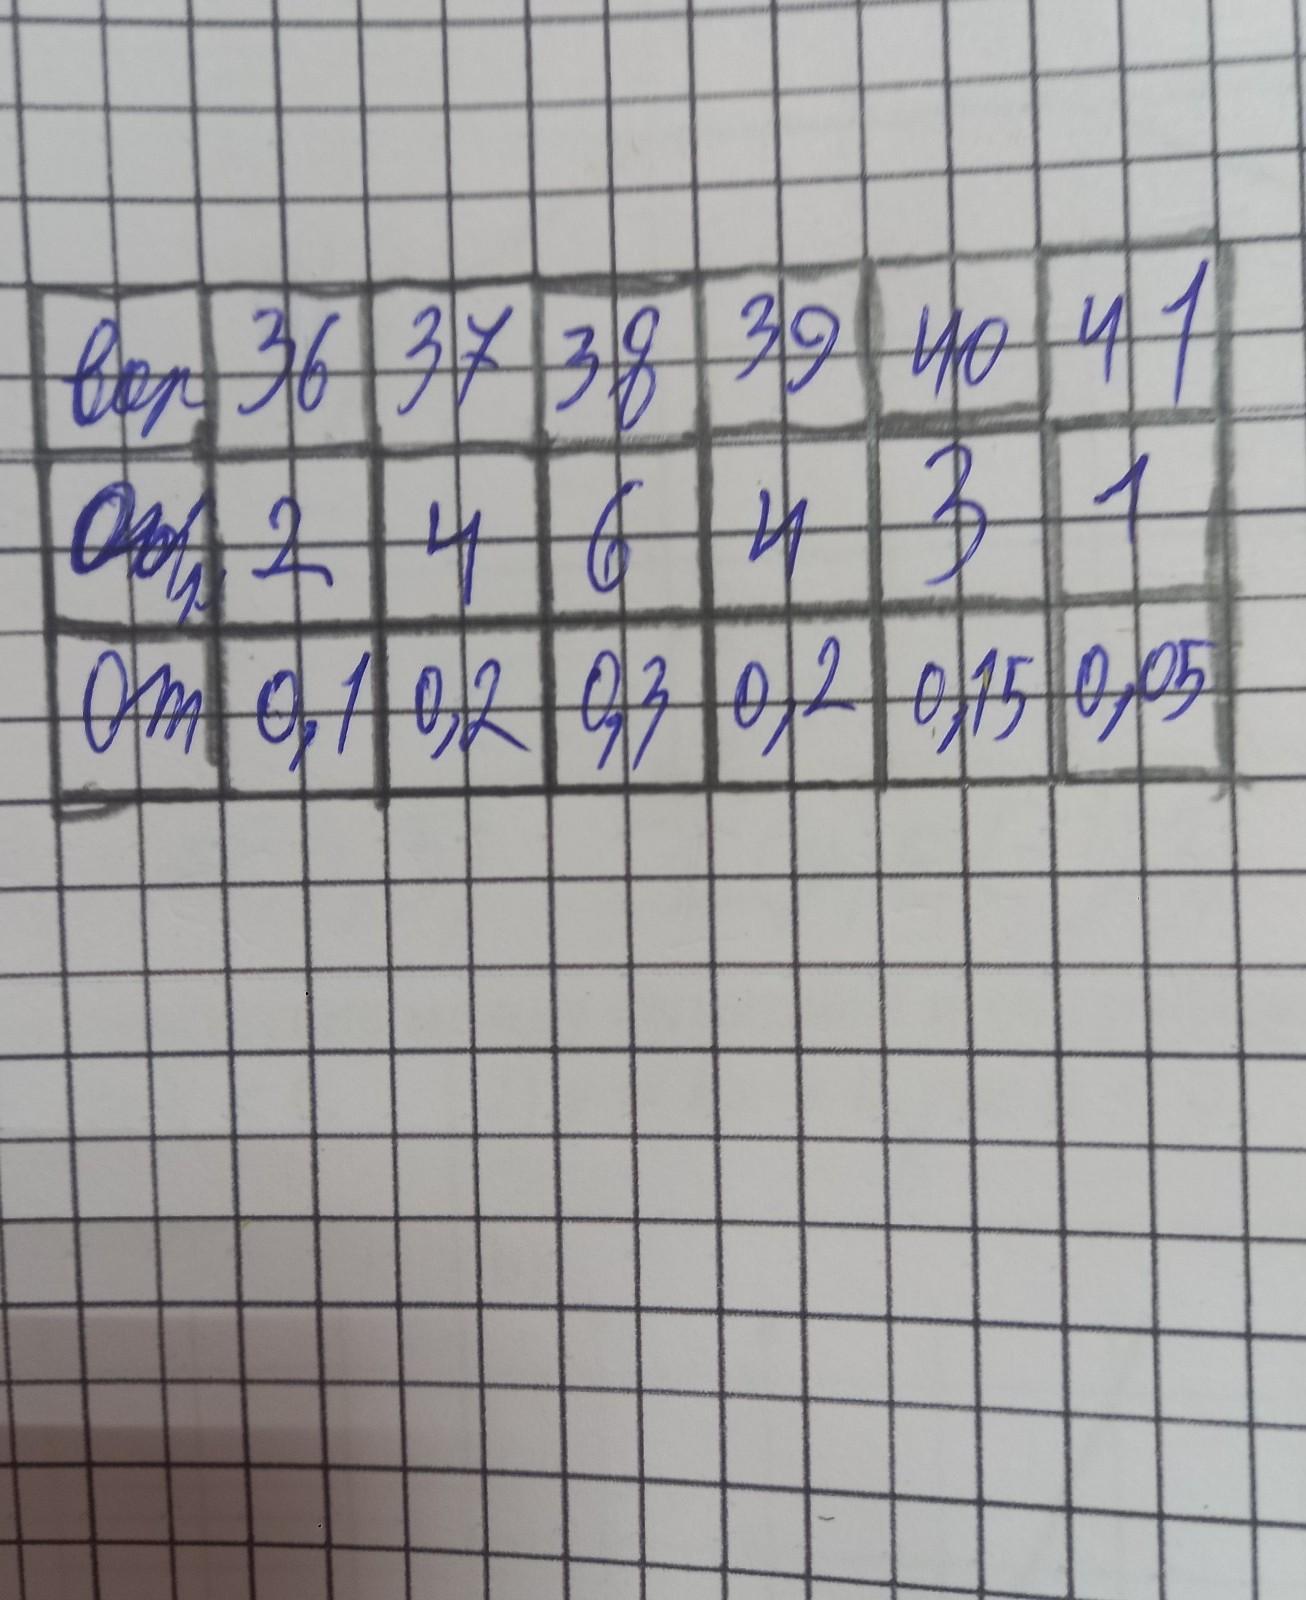 вар 36 37 38 39 40 41
2 4 6 4 3 1
От 0,1 0,2 0,3 0,2 0,15 0,05